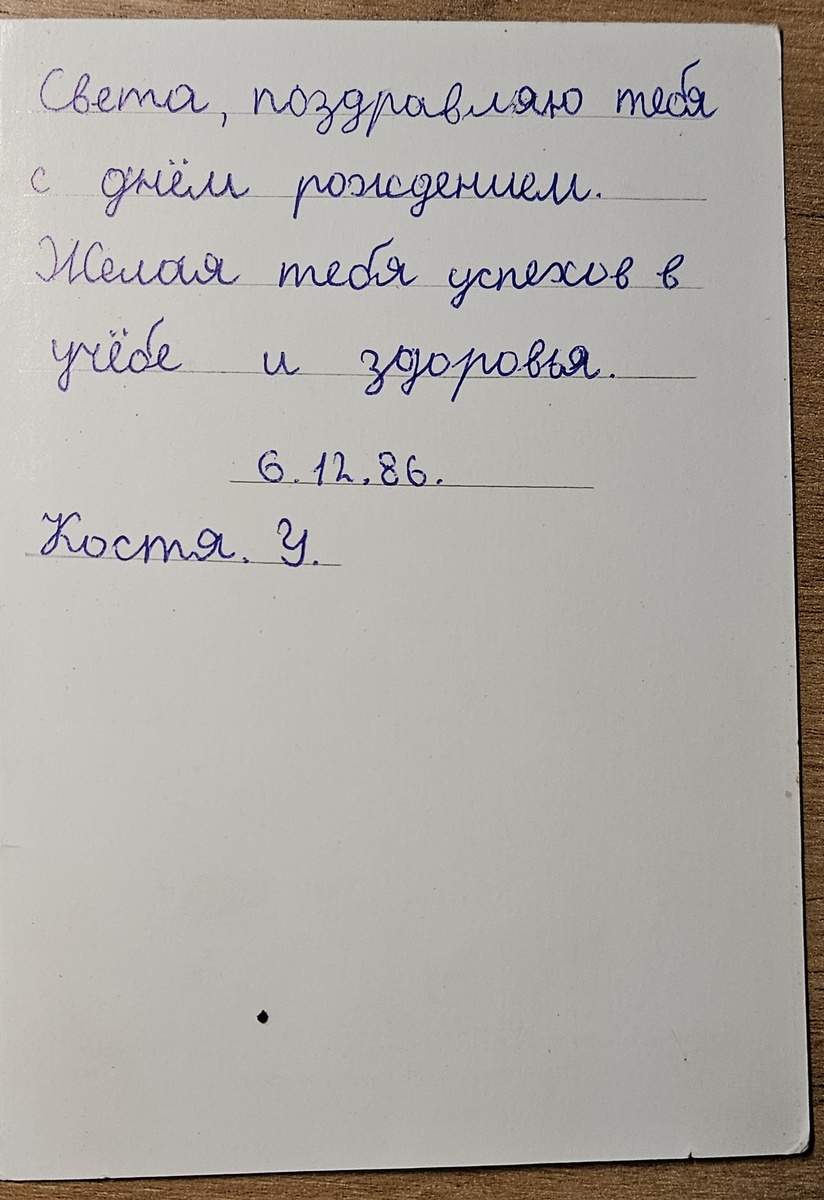 Света, поздравляю тебя
с днём рождением.
Желая тебя успехов в
учёбе и здоровья.
6.12.86.
Костя. У.